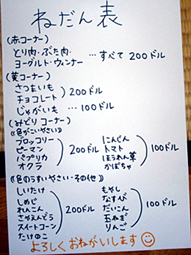 ねだん表
(赤コーナー)
とり肉・ぶた肉
ヨーグルト・ウィンナー …すべて 200ドル
(黄コーナー)
さつまいも
チョコレート 200ドル
じゃがいも … 100ドル
(みどりコーナー)
《色がこいやさい》
ブロッコリー
ピーマン
パプリカ
オクラ
200ドル
にんじん
トマト
ほうれん草
かぼちゃ
100ドル
《色のうすいやさい・その他》
しいたけ
しめじ
れんこん
さやえんどう
スイートコーン
たけのこ
200ドル
もやし
なすび
だいこん
玉ねぎ
りんご
100ドル
よろしくおねがいします